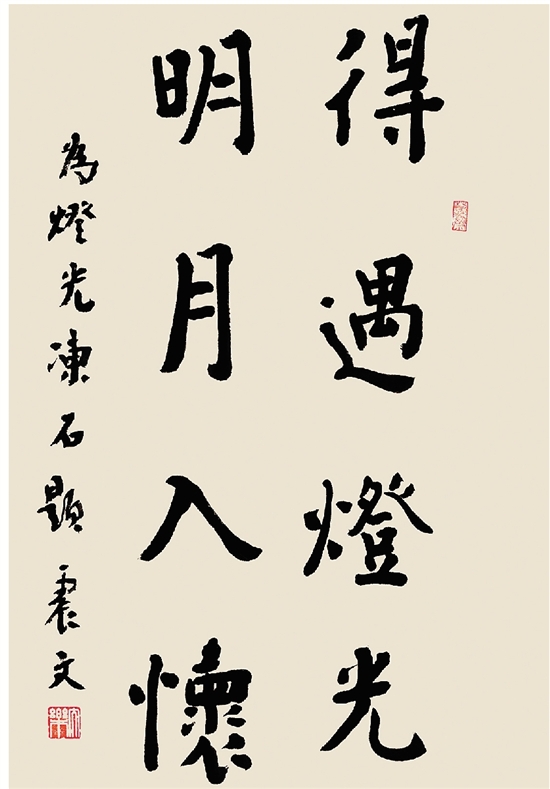 得遇燈光
明月入懷
為燈光凍石題 震文